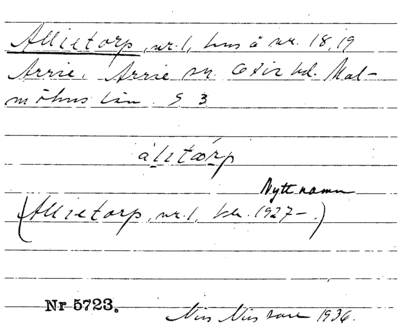 Allietorp, nr. 1, hus å nr. 18, 19
Arrie, Arrie sn. Oxie hd. Mal-
möhus län. S 3
àlıtǿrp
Nytt namn
(Allietorp, nr. 1, 1927-.)
Nr 5723.
Nils Nilsson 1936.